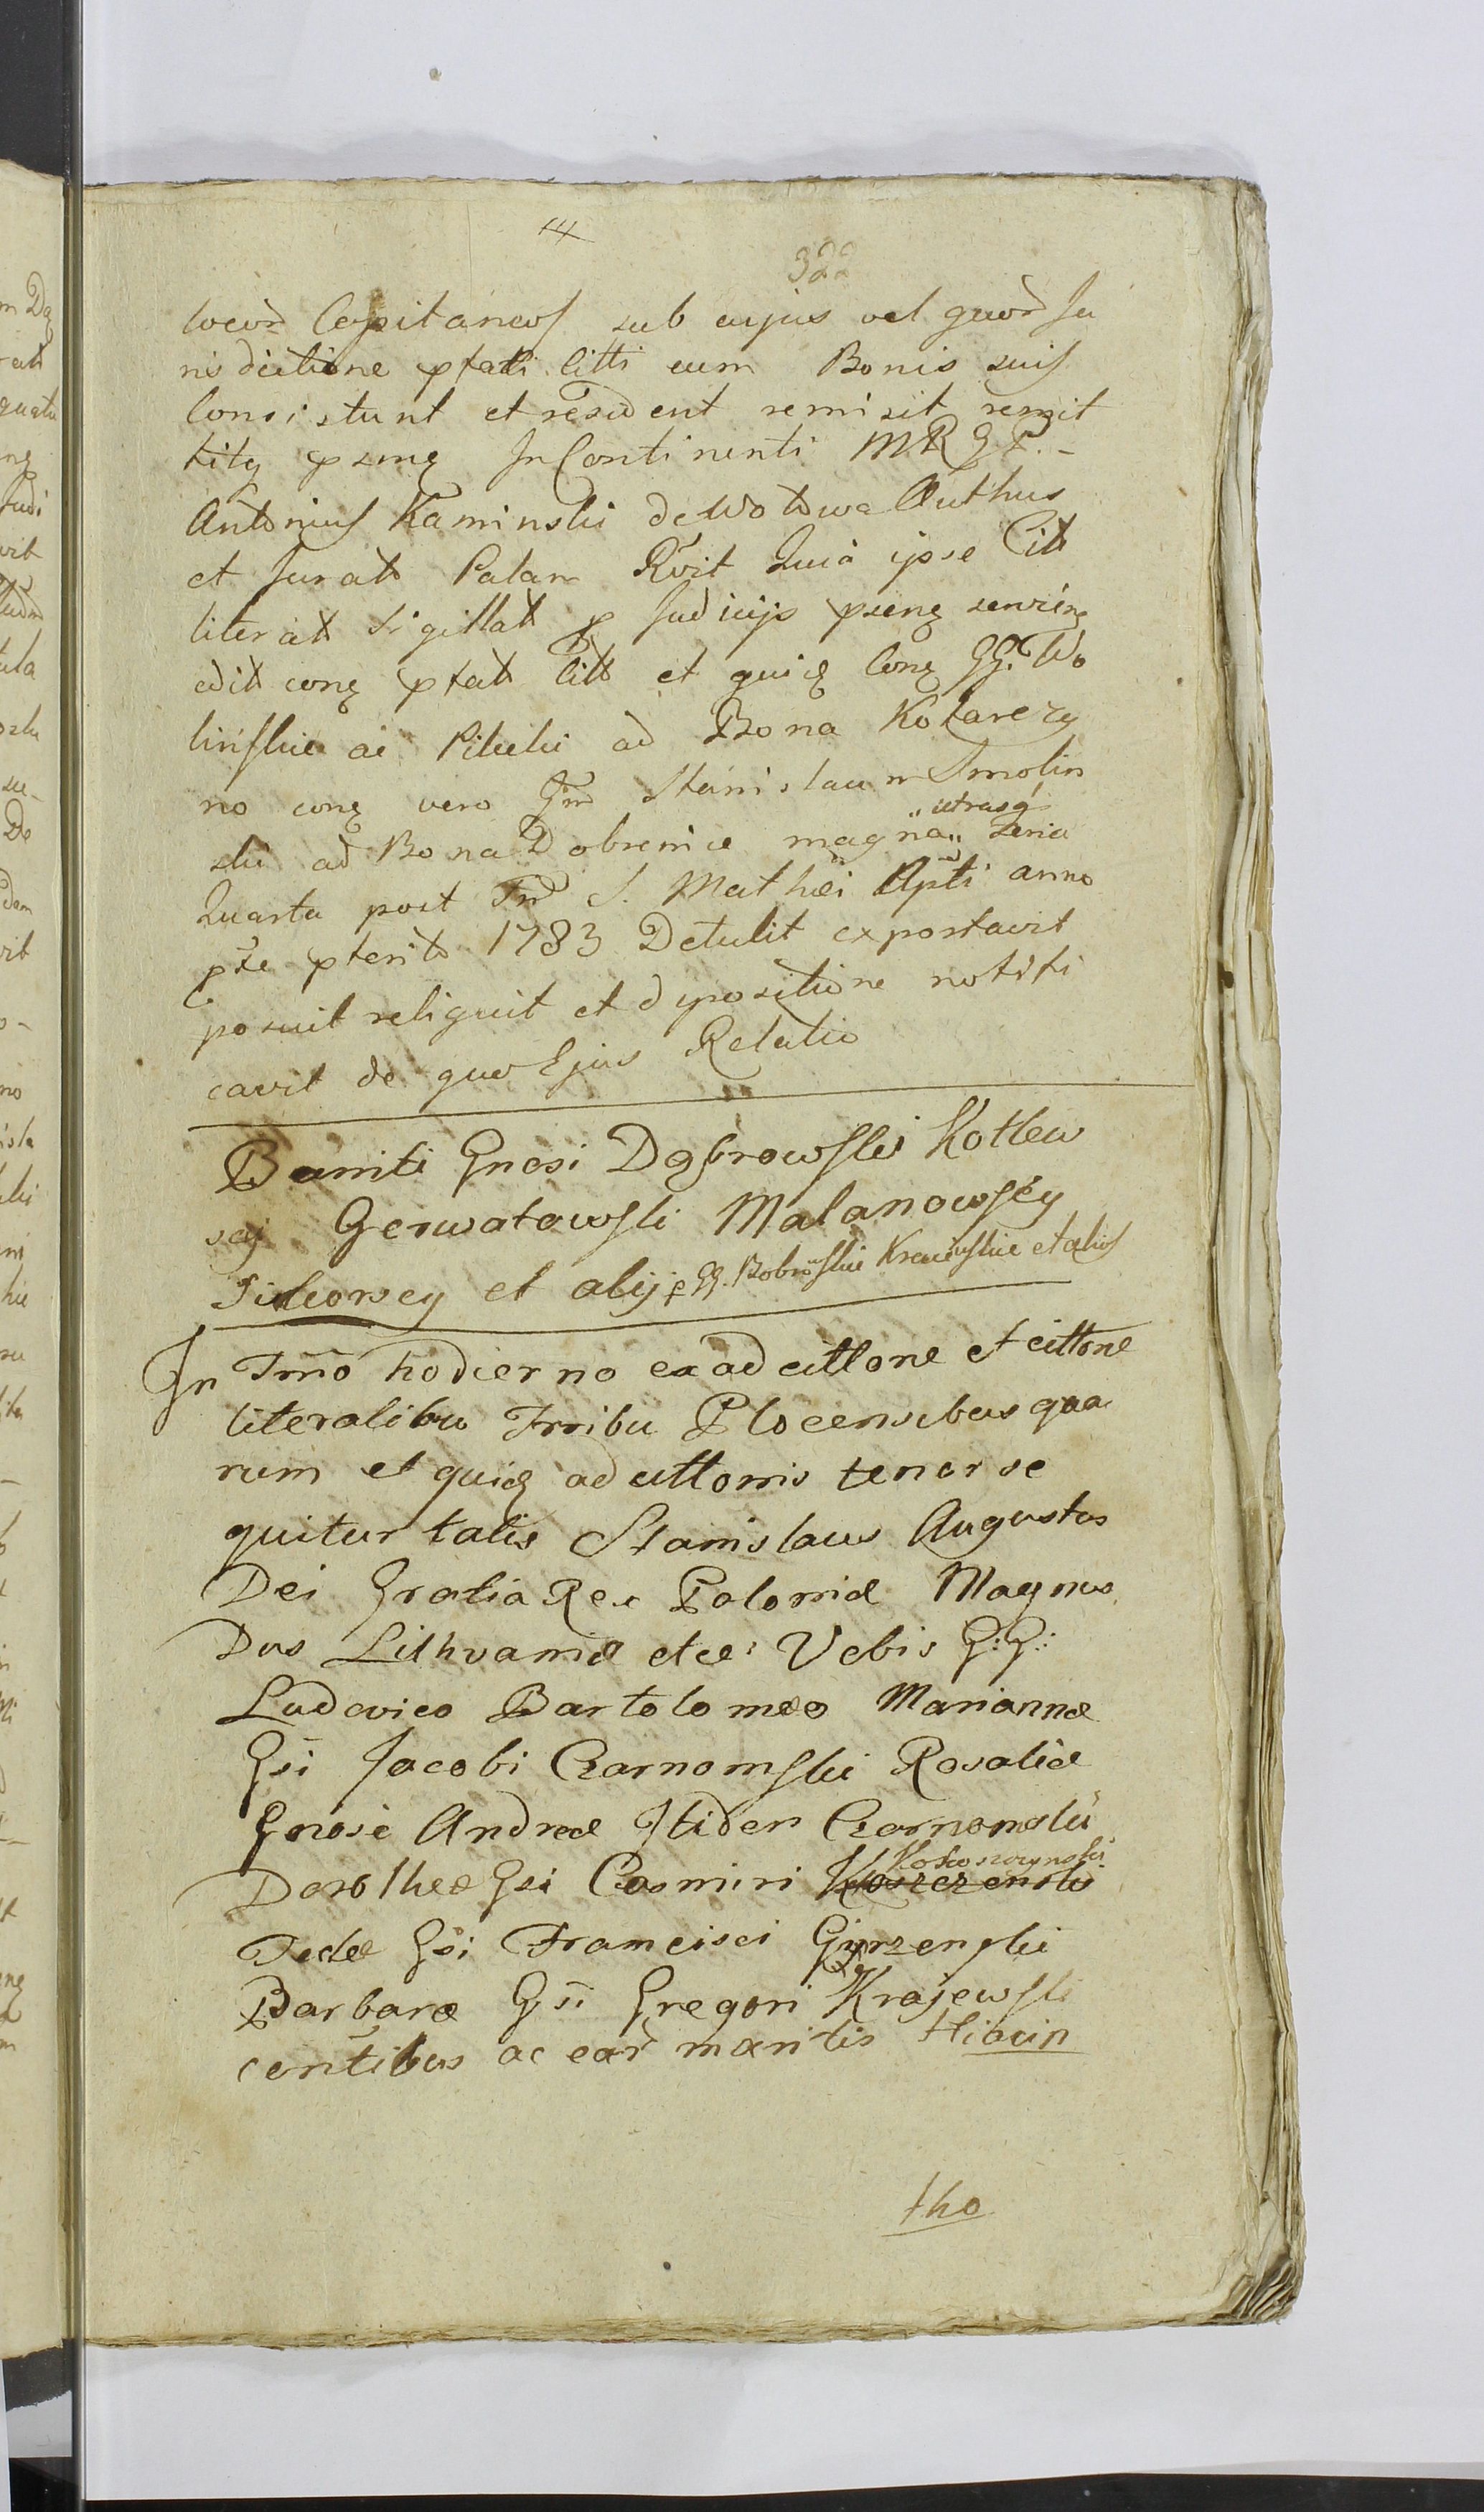 322
locor Capitaneos sub cujus vel quor Ju
risdictione ptatti Citti cum Bonis suis
Consistunt et resident remisit remit
titq psnq In Continenti MRGP. -
Antonius Kaminski de Wotowa Authus
et Jurats Palam Rvit Quia ipse Citt
literat Sigillat p Judicijs psenq
edit conq ptatt Citt et quidq conq GG. Wo
linskie ac Pilecki ad Bona Kolarczy
no conq vero Gnd Stanislaum Smolin
utrasq
ski ad Bona Dobrenice magna feria
Quarta post Fm S. Mathei Apti anno
pxe pterito 1783 Detulit exportavit
posuit reliquit et d positione notifi
cavit de quo Ejus Relatio
Banniti Gnosi Dąbrowski Kotlew
scy Gerwatowski Malanowscy
Sikorscy et alij p GG. Bobrowskie Krajewskie et alios
In Tmo hodierno ex adcittone et cittone
literalibus Trribu Plocensibus qua
rum et quidq adcittonis tenor se
quitur talis Stanislaus Augustus
Dei Gratia Rex Poloniæ Magnus
Dus Lithvaniæ etc: Vobis G:G:
Ludovico Bartolomeo Mariannæ
Gsi Jacobi Czarnomski Rosaliæ
Gnosi Andreæ Itidem Czarnomski
Kokoszczynski
Dorotheæ Gsi Casmiri Koszczenski
Teclæ Gsi Francisci Gyrzenski
Barbaræ Gsi Gregori Krajewski
centibus ac ear maritis Hiacin
tho